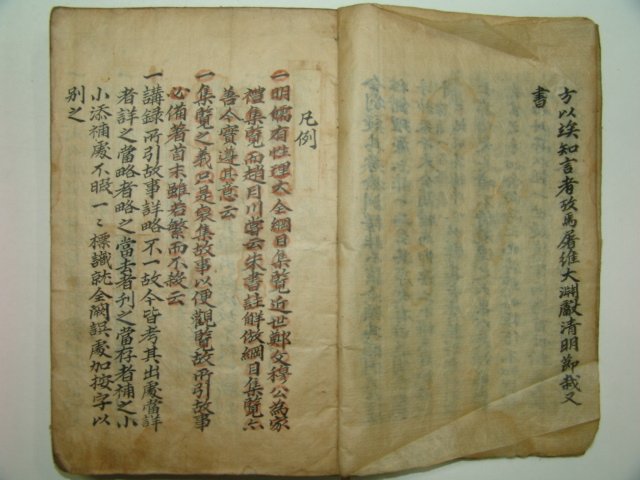 方以竢知言者攷焉屠維大淵獻淸明節哉又
書
凡例
一明儒有性理大全綱目集覽近世鄭文穆公爲家
禮集覽而趙月川嘗云朱書註解倣綱目集覽云
善今實遵其意云
一集覽之義只是裒集故事以便觀覽故所引故事
必備著首末雖若繁而不救云
一講錄所引故事詳略不一故今皆考其出處當詳
者詳之當略者略之當去者刊之當存者補之小
小添補處不暇一〻標識就全闕誤處加按字以
別之